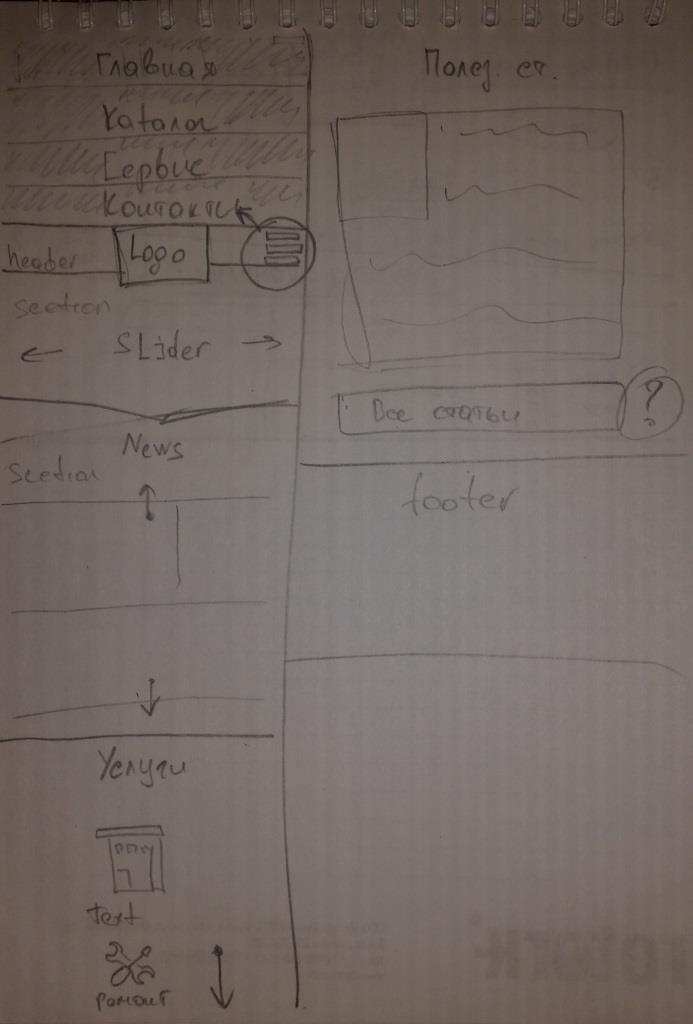 Главная
Каталог
Сервис
Контакты
header
Logo
section
Slider
News
section
Услуги
text
ремонт
Полез. ст.
Все статьи
?
footer